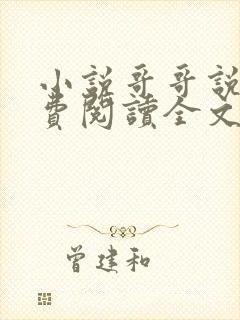 小説哥哥説
費閱讀全文
曾建和